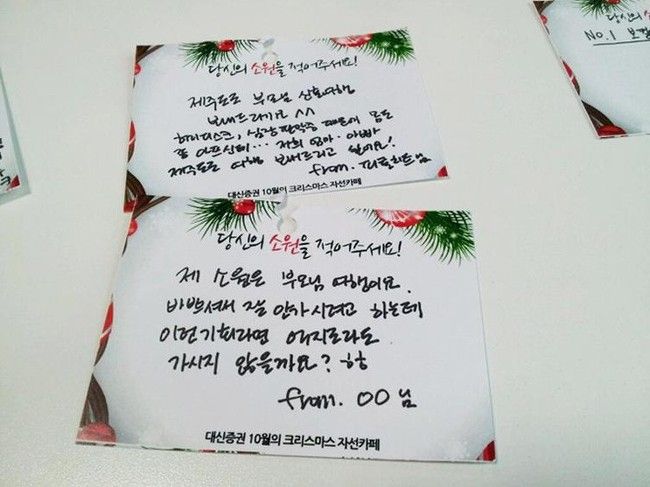 당신의 소원을 적어주세요!
제주도로 부모님 여행
보내드리기요 ^^
허리디스크, 심장 판막증 때문에 몸도
좀 아프신데... 저희 엄마·아빠
제주도로 여행 보내드리고 싶어요!
from.
대신증권 10월의 크리스마스 자선카페
당신의 소원을 적어주세요!
제 소원은 부모님 여행이요.
바쁘셔서 잘 안가시려고 하는데
이런기회라면 억지로라도
가시지 않을까요? ㅎㅎ
from. OO님
대신증권 10월의 크리스마스 자선카페
당신의 소
No.1